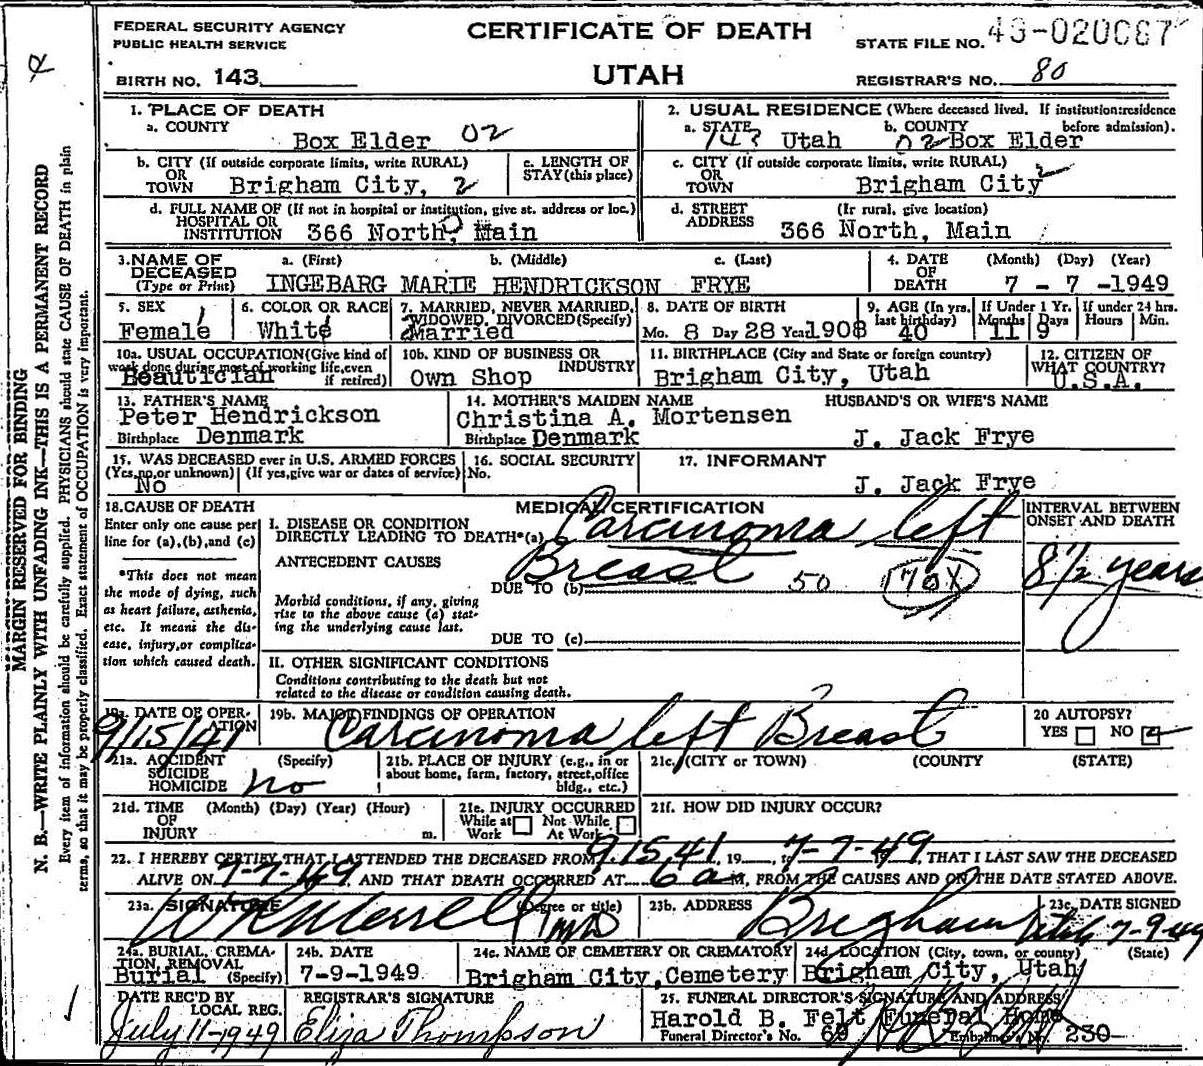 FEDERAL SECURITY AGENCY
PUBLIC HEALTH SERVICE
CERTIFICATE OF DEATH
STATE FILE NO. 43-020087
BIRTH NO. 143
UTAH
REGISTRAR'S NO. 80
MARGIN RESERVED FOR BINDING
N. B.—WRITE PLAINLY WITH UNFADING INK—THIS IS A PERMANENT RECORD
Every item of information should be carefully supplied. PHYSICIANS should state CAUSE OF DEATH in plain
terms, so that it may be properly classified. Exact statement of OCCUPATION is very important.
1. PLACE OF DEATH
a. COUNTY
Box Elder 02
2. USUAL RESIDENCE (Where deceased lived. If institution: residence
before admission).
a. STATE 143 Utah b. COUNTY 02 Box Elder
b. CITY (If outside corporate limits, write RURAL)
OR
TOWN Brigham City, 2
c. LENGTH OF
STAY (this place)
c. CITY (If outside corporate limits, write RURAL)
OR
TOWN Brigham City 2
d. FULL NAME OF (If not in hospital or institution, give st. address or loc.)
HOSPITAL OR
INSTITUTION 366 North, Main
d. STREET (If rural, give location)
ADDRESS 366 North, Main
3. NAME OF
DECEASED
(Type or Print)
a. (First) b. (Middle) c. (Last)
INGEBARG MARIE HENDRICKSON FRYE
4. DATE
OF
DEATH
(Month) (Day) (Year)
7 - 7 -1949
5. SEX
Female 1
6. COLOR OR RACE
White 1
7. MARRIED, NEVER MARRIED,
WIDOWED, DIVORCED (Specify)
2 Married
8. DATE OF BIRTH
Mo. 8 Day 28 Year 1908
9. AGE (In yrs.
last birthday)
40
If Under 1 Yr.
Months Days
11 9
If under 24 hrs.
Hours Min.
10a. USUAL OCCUPATION (Give kind of
work done during most of working life, even
if retired)
Beautician
10b. KIND OF BUSINESS OR
INDUSTRY
Own Shop
11. BIRTHPLACE (City and State or foreign country)
Brigham City, Utah
12. CITIZEN OF
WHAT COUNTRY?
U.S.A.
13. FATHER'S NAME
Peter Hendrickson
Birthplace Denmark
14. MOTHER'S MAIDEN NAME
Christina A. Mortensen
Birthplace Denmark
HUSBAND'S OR WIFE'S NAME
J. Jack Frye
15. WAS DECEASED ever in U.S. ARMED FORCES
(Yes, no, or unknown) (If yes, give war or dates of service)
No
16. SOCIAL SECURITY
No.
17. INFORMANT
J. Jack Frye
18. CAUSE OF DEATH
Enter only one cause per
line for (a), (b), and (c)
*This does not mean
the mode of dying, such
as heart failure, asthenia,
etc. It means the dis-
ease, injury, or complica-
tion which caused death.
MEDICAL CERTIFICATION
I. DISEASE OR CONDITION
DIRECTLY LEADING TO DEATH*(a) Carcinoma left
ANTECEDENT CAUSES
Breast
DUE TO (b) 50 170X
Morbid conditions, if any, giving
rise to the above cause (a) stat-
ing the underlying cause last.
DUE TO (c)
II. OTHER SIGNIFICANT CONDITIONS
Conditions contributing to the death but not
related to the disease or condition causing death.
INTERVAL BETWEEN
ONSET AND DEATH
8 1/2 years
19a. DATE OF OPER-
ATION
9/15/41
19b. MAJOR FINDINGS OF OPERATION
Carcinoma left Breast
20 AUTOPSY?
YES NO
21a. ACCIDENT (Specify)
SUICIDE
HOMICIDE no
21b. PLACE OF INJURY (e.g., in or
about home, farm, factory, street, office
bldg., etc.)
21c. (CITY or TOWN) (COUNTY) (STATE)
21d. TIME (Month) (Day) (Year) (Hour)
OF
INJURY m.
21e. INJURY OCCURRED
While at Not While
Work At Work
21f. HOW DID INJURY OCCUR?
22. I HEREBY CERTIFY THAT I ATTENDED THE DECEASED FROM 9-15, 41, 19__, to 7-7-49, THAT I LAST SAW THE DECEASED
ALIVE ON 7-7-49 AND THAT DEATH OCCURRED AT 6 a M, FROM THE CAUSES AND ON THE DATE STATED ABOVE.
23a. SIGNATURE (Degree or title)
W R Merrell MD
23b. ADDRESS
Brigham Utah
23c. DATE SIGNED
7-9-49
24a. BURIAL, CREMA-
TION, REMOVAL
Burial (Specify)
24b. DATE
7-9-1949
24c. NAME OF CEMETERY OR CREMATORY
Brigham City, Cemetery
24d. LOCATION (City, town, or county) (State)
Brigham City, Utah
DATE REC'D BY
LOCAL REG.
July 11-1949
REGISTRAR'S SIGNATURE
Eliza Thompson
25. FUNERAL DIRECTOR'S SIGNATURE AND ADDRESS
Harold B. Felt Funeral Home
Funeral Director's No. 69 Embalmer's No. 230